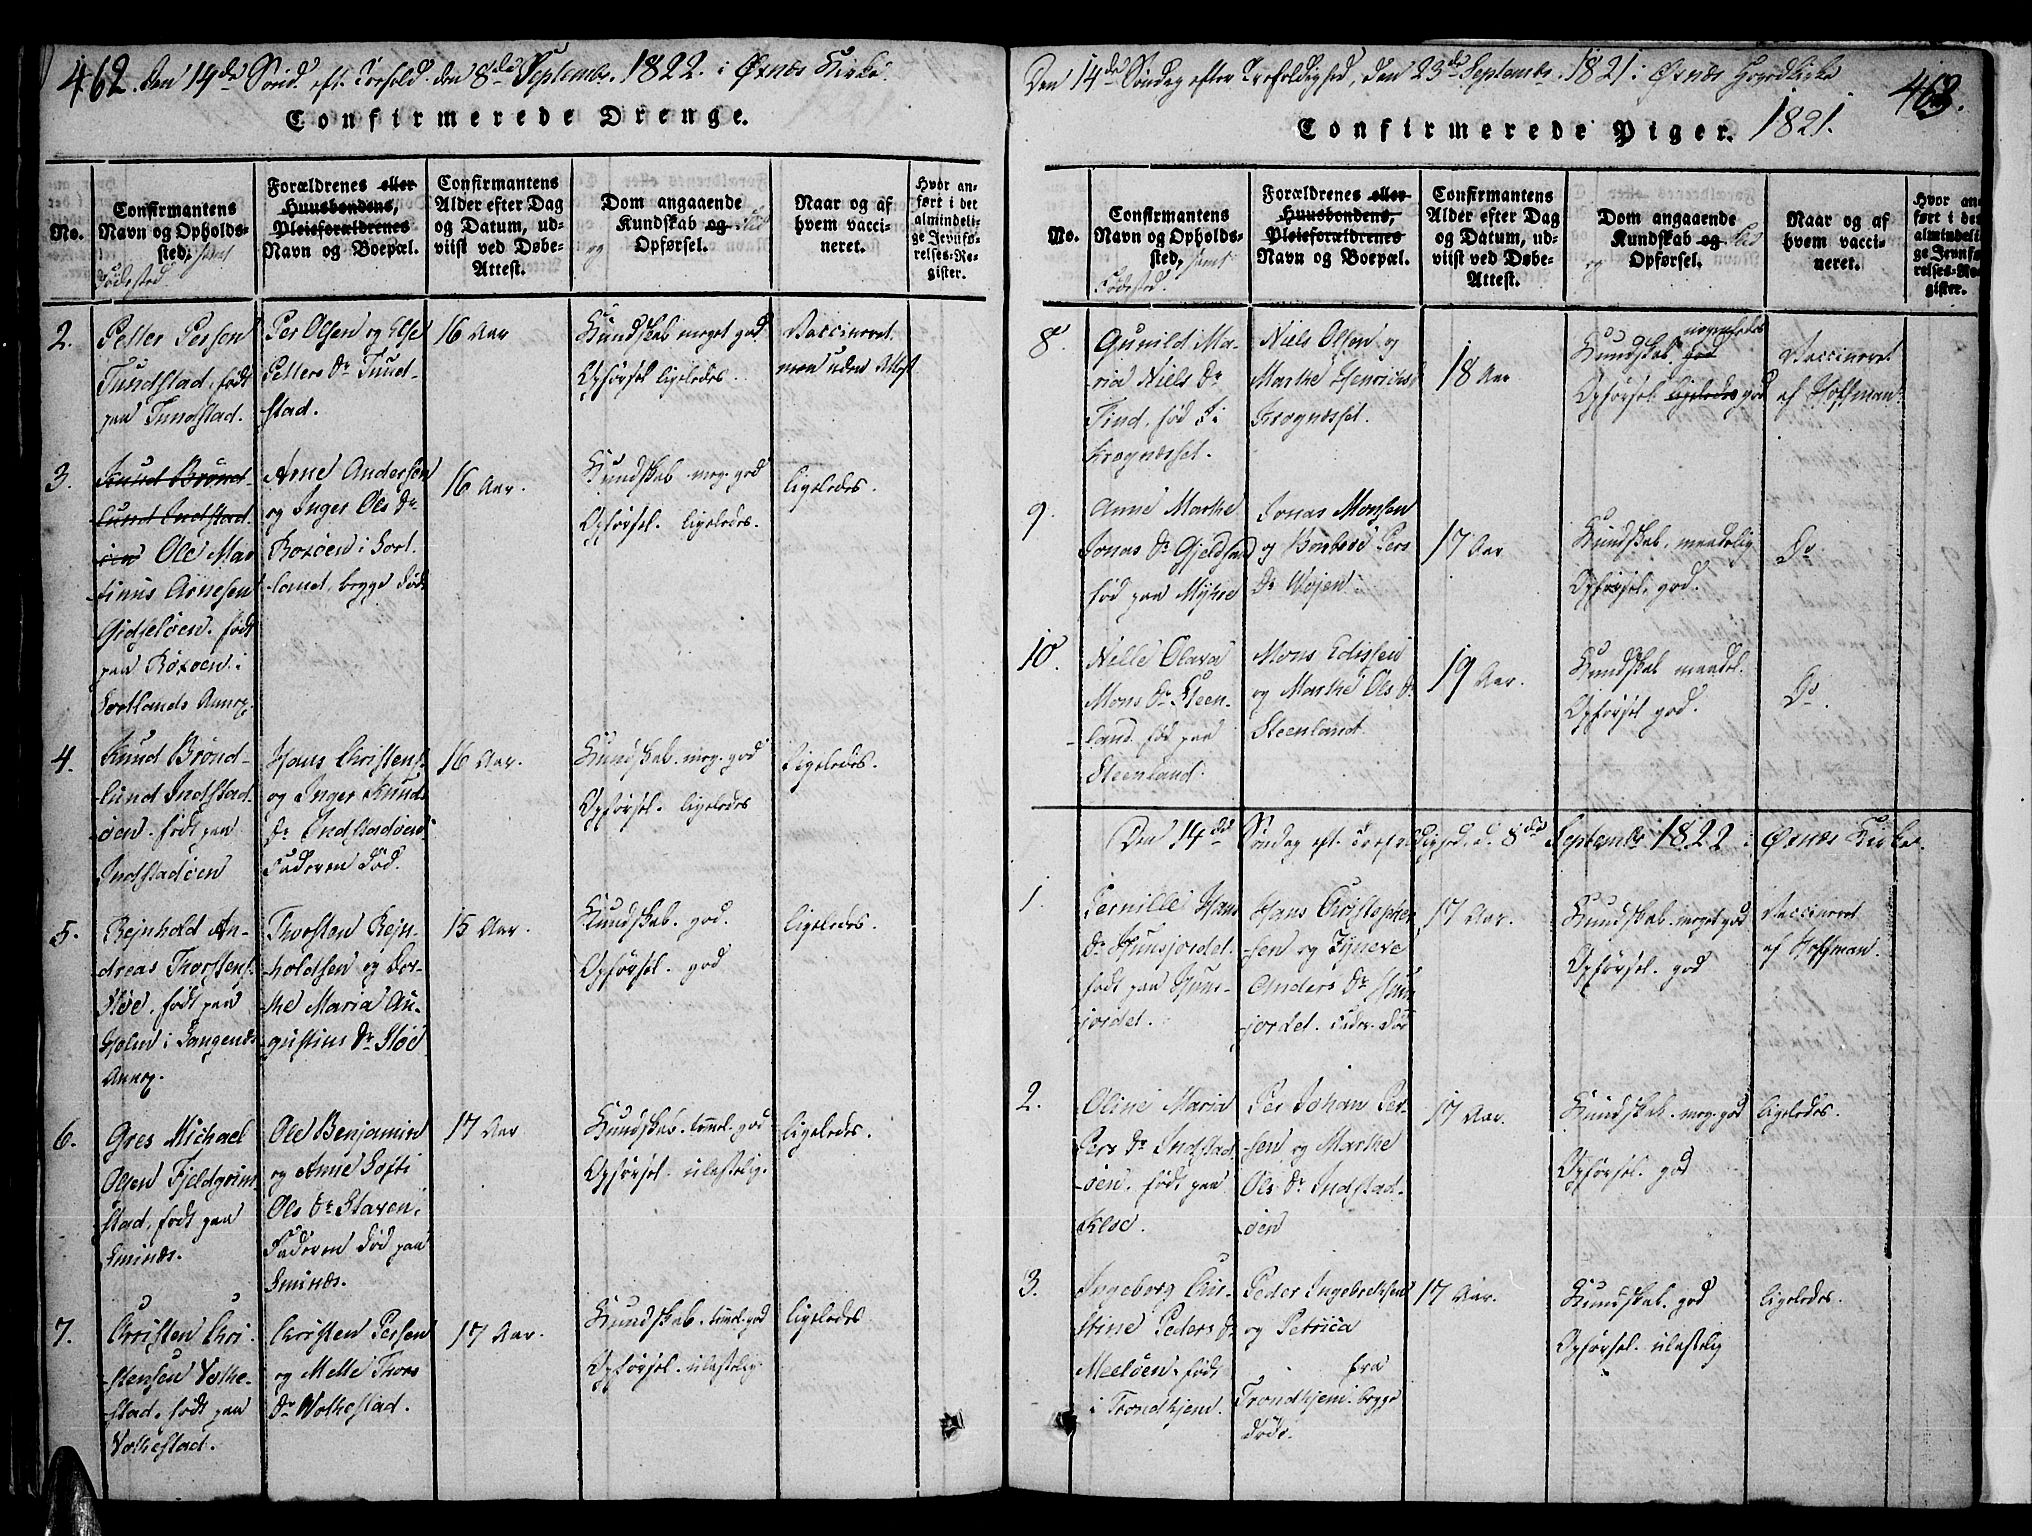 462. Den 14de Sønd. eft. Trefold. den 8de Septembr. 1822. i Øxnæs Kirke.
Confirmerede Drenge.
No.
Confirmantens
Navn og Opholds-
sted, samt
Fødested
Forældrenes eller
Huusbondens,
Pleieforældrenes
Navn og Boepæl.
Confirmantens
Alder efter Dag
og Datum, ud-
viist ved Døbe-
Attest.
Dom angaaende
Kundskab og Flid
og Opførsel.
Naar og af
hvem vacci-
neret.
Hvor an-
ført i det
almindeli-
ge Jevnfø-
relses-Re-
gister.
2.
Petter Person
Tundstad, født
paa Tundstad.
Per Olsen og Else
Petters Dr Tund-
stad.
16 Aar
Kundskab meget god
Opførsel ligeledes.
Vaccineret
men uden Attest
3.
Knud Brønd-
lund Indstad
øen Ole Mar
tinus Arnesen
Gidsløen. født
paa Roxøen i
Sortlands Annex.
Arne Andersen
og Inger Ols Dr
Roxøen i Sort
land, begge døde
16 Aar.
Kundskab. meg. god
Opførsel. ligeledes.
ligeledes.
4.
Knud Brønd-
lund Indstad-
øen. født paa
Indstadøen
Hans Christens.
og Inger Knuds
Dr Indstadøen
Faderen død.
16 Aar.
Kundskab. meg. god
Opførsel. ligeledes
Ligeledes.
5.
Rejnhold An-
dreas Thorstens.
Støe, født paa
Holm i Langenæs
Annex.
Thorsten Rejn-
holdsen og Dor-
the Maria Au-
gustins Dr Støe
15 Aar.
Kundskab. god.
Opførsel. god
ligeledes.
6.
Gres Michael
Olsen Fjeldgrim
stad, født paa
Sminæs.
Ole Benjamin
og Anne Sofie
Ols Dr Staven,
Faderen død paa
Sminæs.
17 Aar
Kundskab. temel. god
Opførsel. ulastelig.
ligeledes.
7.
Christen Chri-
stensen Vothe-
stad, født paa
Vothestad.
Christen Persen
og Mette Thors
Dr Vothestad.
17 Aar.
Kundskab. temel. god
Opførsel. ulastelig.
ligeledes
Den 14de Søndag efter Trefoldighed, den 23de Septembr. 1821 i Øxnæs Hovedkirke
463.
Confirmerede Piger. 1821.
No.
Confirmantens
Navn og Opholds-
sted, samt
Fødested.
Forældrenes eller
Huusbondens,
Pleieforældrenes
Navn og Boepæl.
Confirmantens
Alder efter Dag
og Datum, ud-
viist ved Døbe-
Attest.
Dom angaaende
Kundskab og Flid
og Opførsel.
Naar og af
hvem vacci-
neret.
Hvor an-
ført i det
almindeli-
ge Jevnfø-
relses-Re-
gister.
8.
Gunild Ma-
ria Niels Dr
Tind, fød i
Krognæsset.
Niels Olsen og
Marthe Henrichs
Krognæsset.
18 Aar
Kundskab god
Opførsel ligeledes god
Vaccineret
af Hoffman
9.
Anne Marthe
Jonas Dr Gjeldsand
fød paa Myhre
Jonas Monsen
og Pers
Dr Wojen
17 Aar
Kundskab, maadelig
Opførsel, god.
Do
10.
Nille Olava
Mons Dr Steen-
land, fød paa
Steenland
Mons Edissen
og Marthe Ols Dr
Steenland
19 Aar.
Kundskab maadel.
Opførsel god.
Do
Den 14de Søndag eft. Trefoldighed. d. 8de Septembr 1822 i Øxnæs Kirke.
1.
Pernille Hans
Dr Hunsjordet.
født paa Huns-
jordet.
Hans Christopher
sen og Synneve
Anders Dr Huns
jordet. Fader. død
17 Aar.
Kundskab. meget god
Opførsel. god
Vaccineret
af Hoffman.
2.
Oline Maria
Pers Dr Indstad
øen. født paa
Kloe.
Per Johan Per-
sen og Marthe
Ols Dr Indstad-
øen
17 Aar.
Kundskab. meg. god
Opførsel. god
ligeledes.
3.
Ingeborg Chri-
stine Peders Dr
Meeløen, født
i Trondhjem.
Peder Ingebrethsen
og Petrica
fra
Trondhjem. begge
døde.
17 Aar.
Kundskab. god
Opførsel. ulastelig
ligeledes.